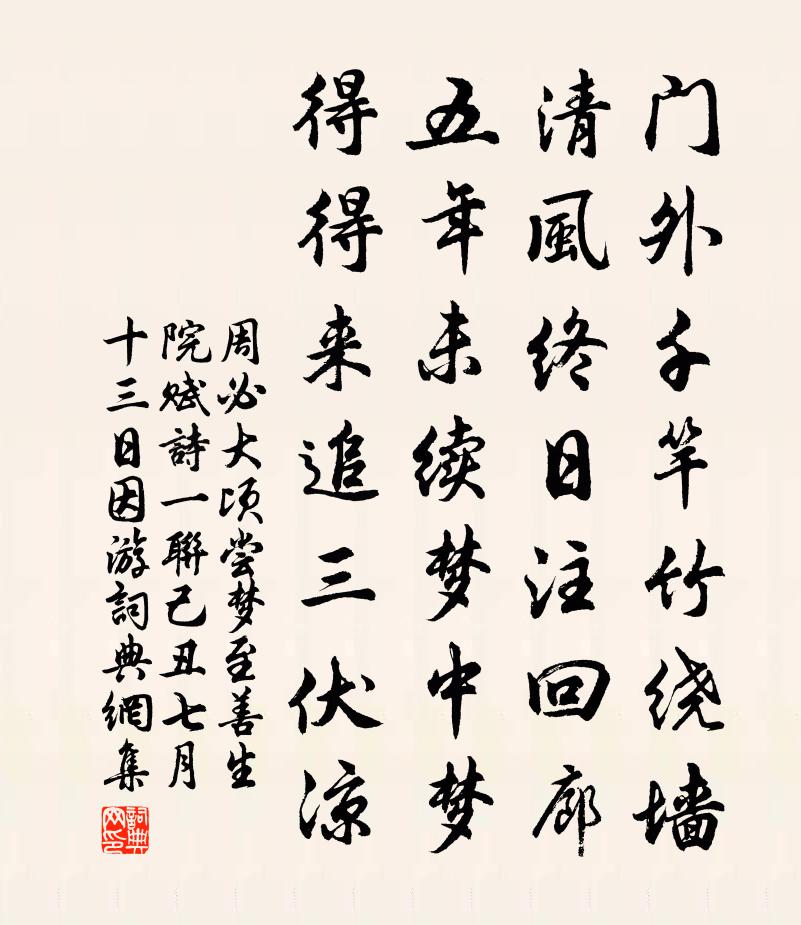 门外千竿竹绕墙
清風终日注回廊
五年未续梦中梦
得得来追三伏凉
周必大顷尝梦至善生
院赋詩一聯己丑七月
十三日因游詞典網集
詞典网印